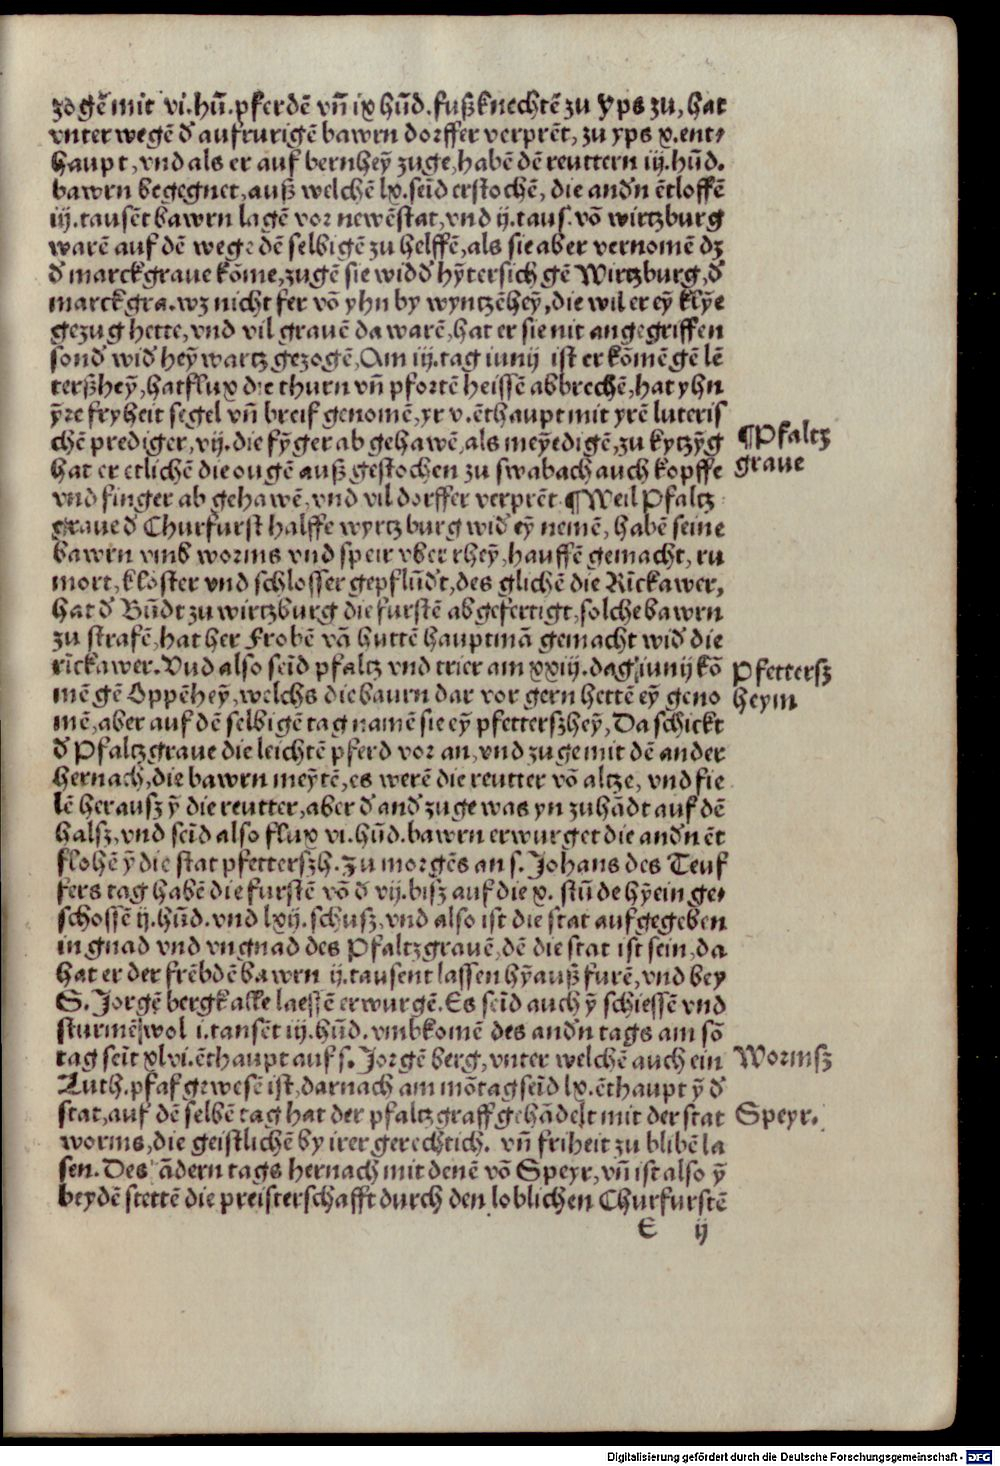 zogē mit vi.hū.pferdē vñ ix hūd.fußknechtē zu yps zu, hat
vnter wegē d̄ aufrurigē bawrn dorffer verprēt, zu yps x.ent⸗
haupt, vnd als er auf bernheȳ zuge, habē dē reuttern iij.hūd.
bawrn begegnet, auß welchē lx.seīd erstochē, die andn̄ ētloffē
iij.tausēt bawrn lagē vor newēstat, vnd ij.taus. vō wirtzburg
warē auf dē wege dē selbigē zu helffē, als sie aber vernomē dz
d̄ marckgraue kōme, zugē sie widd̄ hȳtersich gē Wirtzburg, d̄
marckgra.wz nicht fer vō yhn by wyntzēheȳ, die wil er eȳ klȳe
gezug hette, vnd vil grauē da warē, hat er sie nit angegriffen
sond̄ wid̄ heȳ wartz gezogē, Am iij.tag iunij ist er kōmē gē lē
terßheȳ, hat flux die thurn vñ pfortē heissē abbrechē, hat yhn
ȳre fryheit segel vñ breif genomē, yr v.ēthaupt mit yrē luteris
chē prediger, vij.die fȳger ab gehawē, als meȳedigē, zu kytzȳg
hat er etlichē die ougē auß gestochen zu swabach auch kopffe
vnd finger ab gehawē, vnd vil dorffer verprēt ¶Weil Pfaltz
graue d̄ Churfurst halffe wyrtzburg wid̄ eȳ nemē, habē seine
bawrn vmb worms vnd speir vber rheȳ, hauffē gemacht, ru
mort, kloster vnd schlosser gepflūdt, des glichē die Rīckawer,
hat d̄ Būdt zu wirtzburg die furstē abgefertigt, solche bawrn
zu strafē, hat her Frobē vā huttē hauptmā gemacht wid̄ die
rīckawer. Vnd also seīd pfaltz vnd trier am xxiij.dag iunij kō
mē gē Oppēheȳ, welchs die baurn dar vor gern hettē eȳ geno
mē, aber auf dē selbigē tag namē sie eȳ pfetterszheȳ, Da schickt
d̄ Pfaltzgraue die leichtē pferd vor an, vnd zuge mit dē ander
hernach, die bawrn meȳtē, es werē die reutter vō altze, vnd fie
lē herausz ȳ die reutter, aber d̄ and̄ zuge was yn zuhādt auf dē
halsz, vnd seīd also flux vi.hūd.bawrn erwurget die andn̄ ēt
flohē ȳ die stat pfetterszh. Zu morgēs an s. Johans des Teuf
fers tag habē die furstē vō d̄ vij.bisz auf die x. stūde hȳein ge⸗
schossē ij.hūd.vnd lxij.schusz, vnd also ist die stat auf gegeben
in gnad vnd vngnad des Pfaltzgrauē, dē die stat ist sein, da
hat er der frēbdē bawrn ij.tausent lassen hȳauß furē, vnd bey
S. Jorgē bergk alle laessē erwurgē. Es seīd auch ȳ schiessē vnd
sturmē wol i.tausēt iij.hūd.vmbkomē des andn̄ tags am sō
tag seīt xlvi.ēthaupt auf s. Jorgē berg, vnter welchē auch ein
Luth.pfaf gewesē ist, darnach am mōtag seīd lx.ēthaupt ȳ d̄
stat, auf dē selbē tag hat der pfaltzgraff gehādelt mit der stat
worms, die geistlichē by irer gerechtich. vñ friheit zu blibē la
sen. Des ādern tags hernach mit denē vō Speyr, vñ ist also ȳ
beydē stettē die preisterschafft durch den loblichen Churfurstē
E ij
¶Pfaltz
graue
Pfettersz
heym
Wormsz
Speyr.
Digitalisierung gefördert durch die Deutsche Forschungsgemeinschaft - DFG